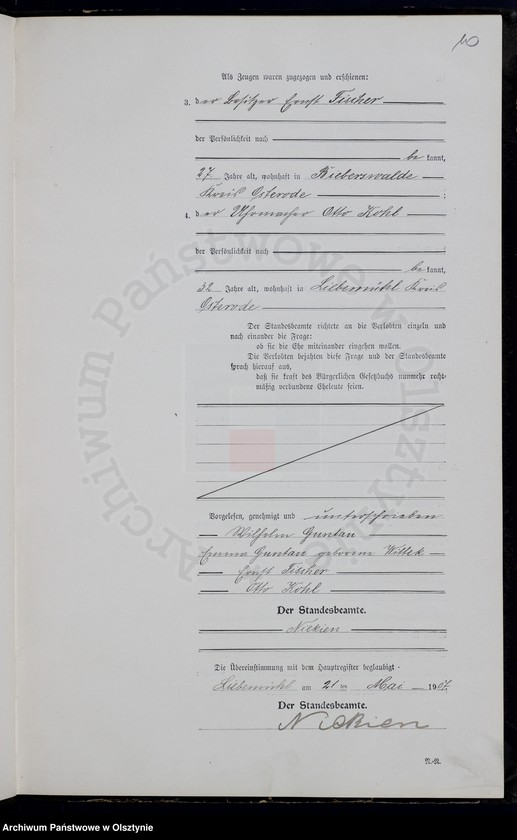 10
Als Zeugen waren zugezogen und erschienen:
3. der Besitzer Ernst Fischer
der Persönlichkeit nach
be kannt,
27 Jahre alt, wohnhaft in Bieberswalde
Kreis Osterode ;
4. der Uhrmacher Otto Kohl
der Persönlichkeit nach
be kannt,
32 Jahre alt, wohnhaft in Liebemühl Kreis
Osterode
Der Standesbeamte richtete an die Verlobten einzeln und
nach einander die Frage:
ob sie die Ehe miteinander eingehen wollen.
Die Verlobten bejahten diese Frage und der Standesbeamte
sprach hierauf aus,
daß sie kraft des Bürgerlichen Gesetzbuchs nunmehr recht-
mäßig verbundene Eheleute seien.
Vorgelesen, genehmigt und unterschrieben
Wilhelm Guntau
Emma Guntau geborene Wittek
Ernst Fischer
Otto Kohl
Der Standesbeamte.
Nickien
Die Übereinstimmung mit dem Hauptregister beglaubigt
Liebemühl am 21 ten Mai 1907.
Der Standesbeamte.
Nickien
Archiwum Państwowe w Olsztynie
Archiwum Państwowe w Olsztynie